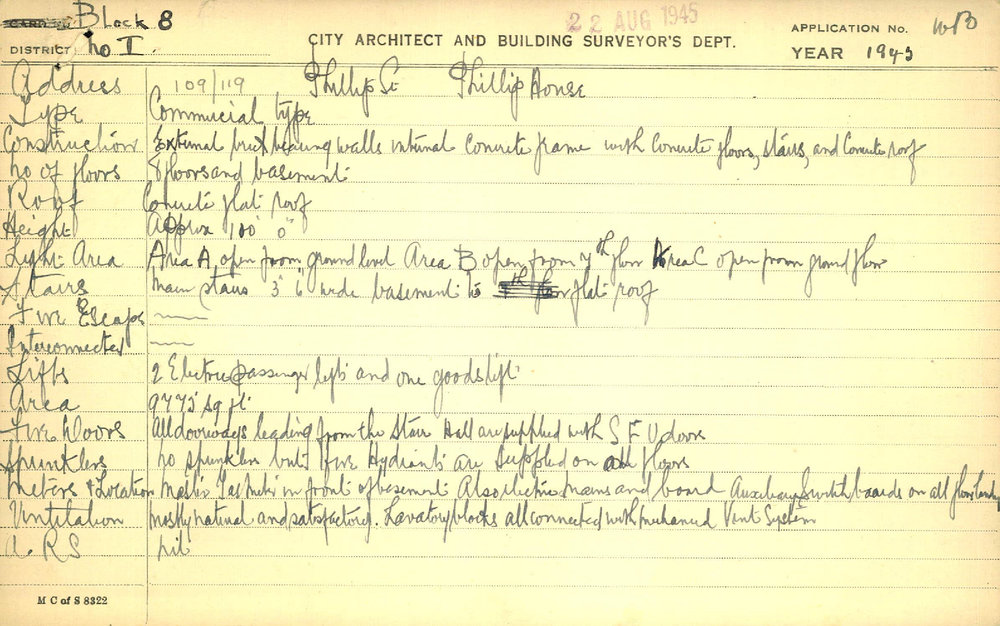 Block 8
22 AUG 1945
DISTRICT No I.
CITY ARCHITECT AND BUILDING SURVEYOR'S DEPT.
APPLICATION No. WB
YEAR 1945
Address 109/119 Phillip St Phillip House
Type Commercial type
Construction External brick bearing walls internal concrete frame with concrete floors, stairs, and concrete roof
No of floors 8 floors and basement
Roof Concrete flat roof
Height Approx 100' 0"
Light Area Area A open from ground level Area B open from 7th floor Area C open from ground floor
Stairs Main stairs 3' 6" wide basement to flat roof
Fire Escape
Interconnected
Lifts 2 Electric passenger lifts and one goods lift
Area 9775 sq ft
Fire Doors All doorways leading from the Stair Hall are supplied with S F U doors
Sprinklers No sprinklers but Fire Hydrants are supplied on all floors
Meters & Location Master Gas Meter in front of basement Also electric mains and board Auxiliary Switch boards on all floor
Ventilation Mostly natural and satisfactory. Lavatory blocks all connected with mechanical Vent System
A. R S nil
M C of S 8322